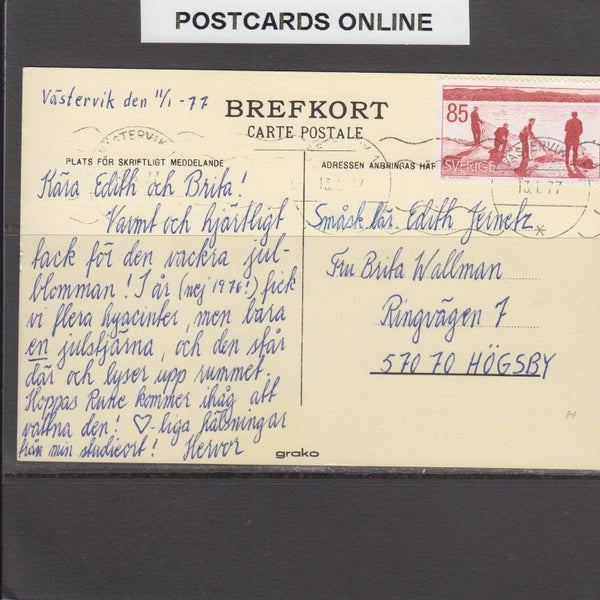 POSTCARDS ONLINE
Västervik den 11/1 -77
BREFKORT
CARTE POSTALE
85
SVERIGE
VÄSTERVIK
13.1.77
PLATS FÖR SKRIFTLIGT MEDDELANDE
ADRESSEN ANBRINGAS HÄR
Kära Edith och Brita!
Varmt och hjärtligt
tack för den vackra jul-
blomman! I år (nej 1976!) fick
vi flera hyacinter, men bara
en julstjärna, och den står
där och lyser upp rummet.
Hoppas Rune kommer ihåg att
vattna den! ♡-liga hälsningar
från min studieort! Hervor
Småsk.lär. Edith
Fru Brita Wallman
Ringvägen 7
570 70 HÖGSBY
grako